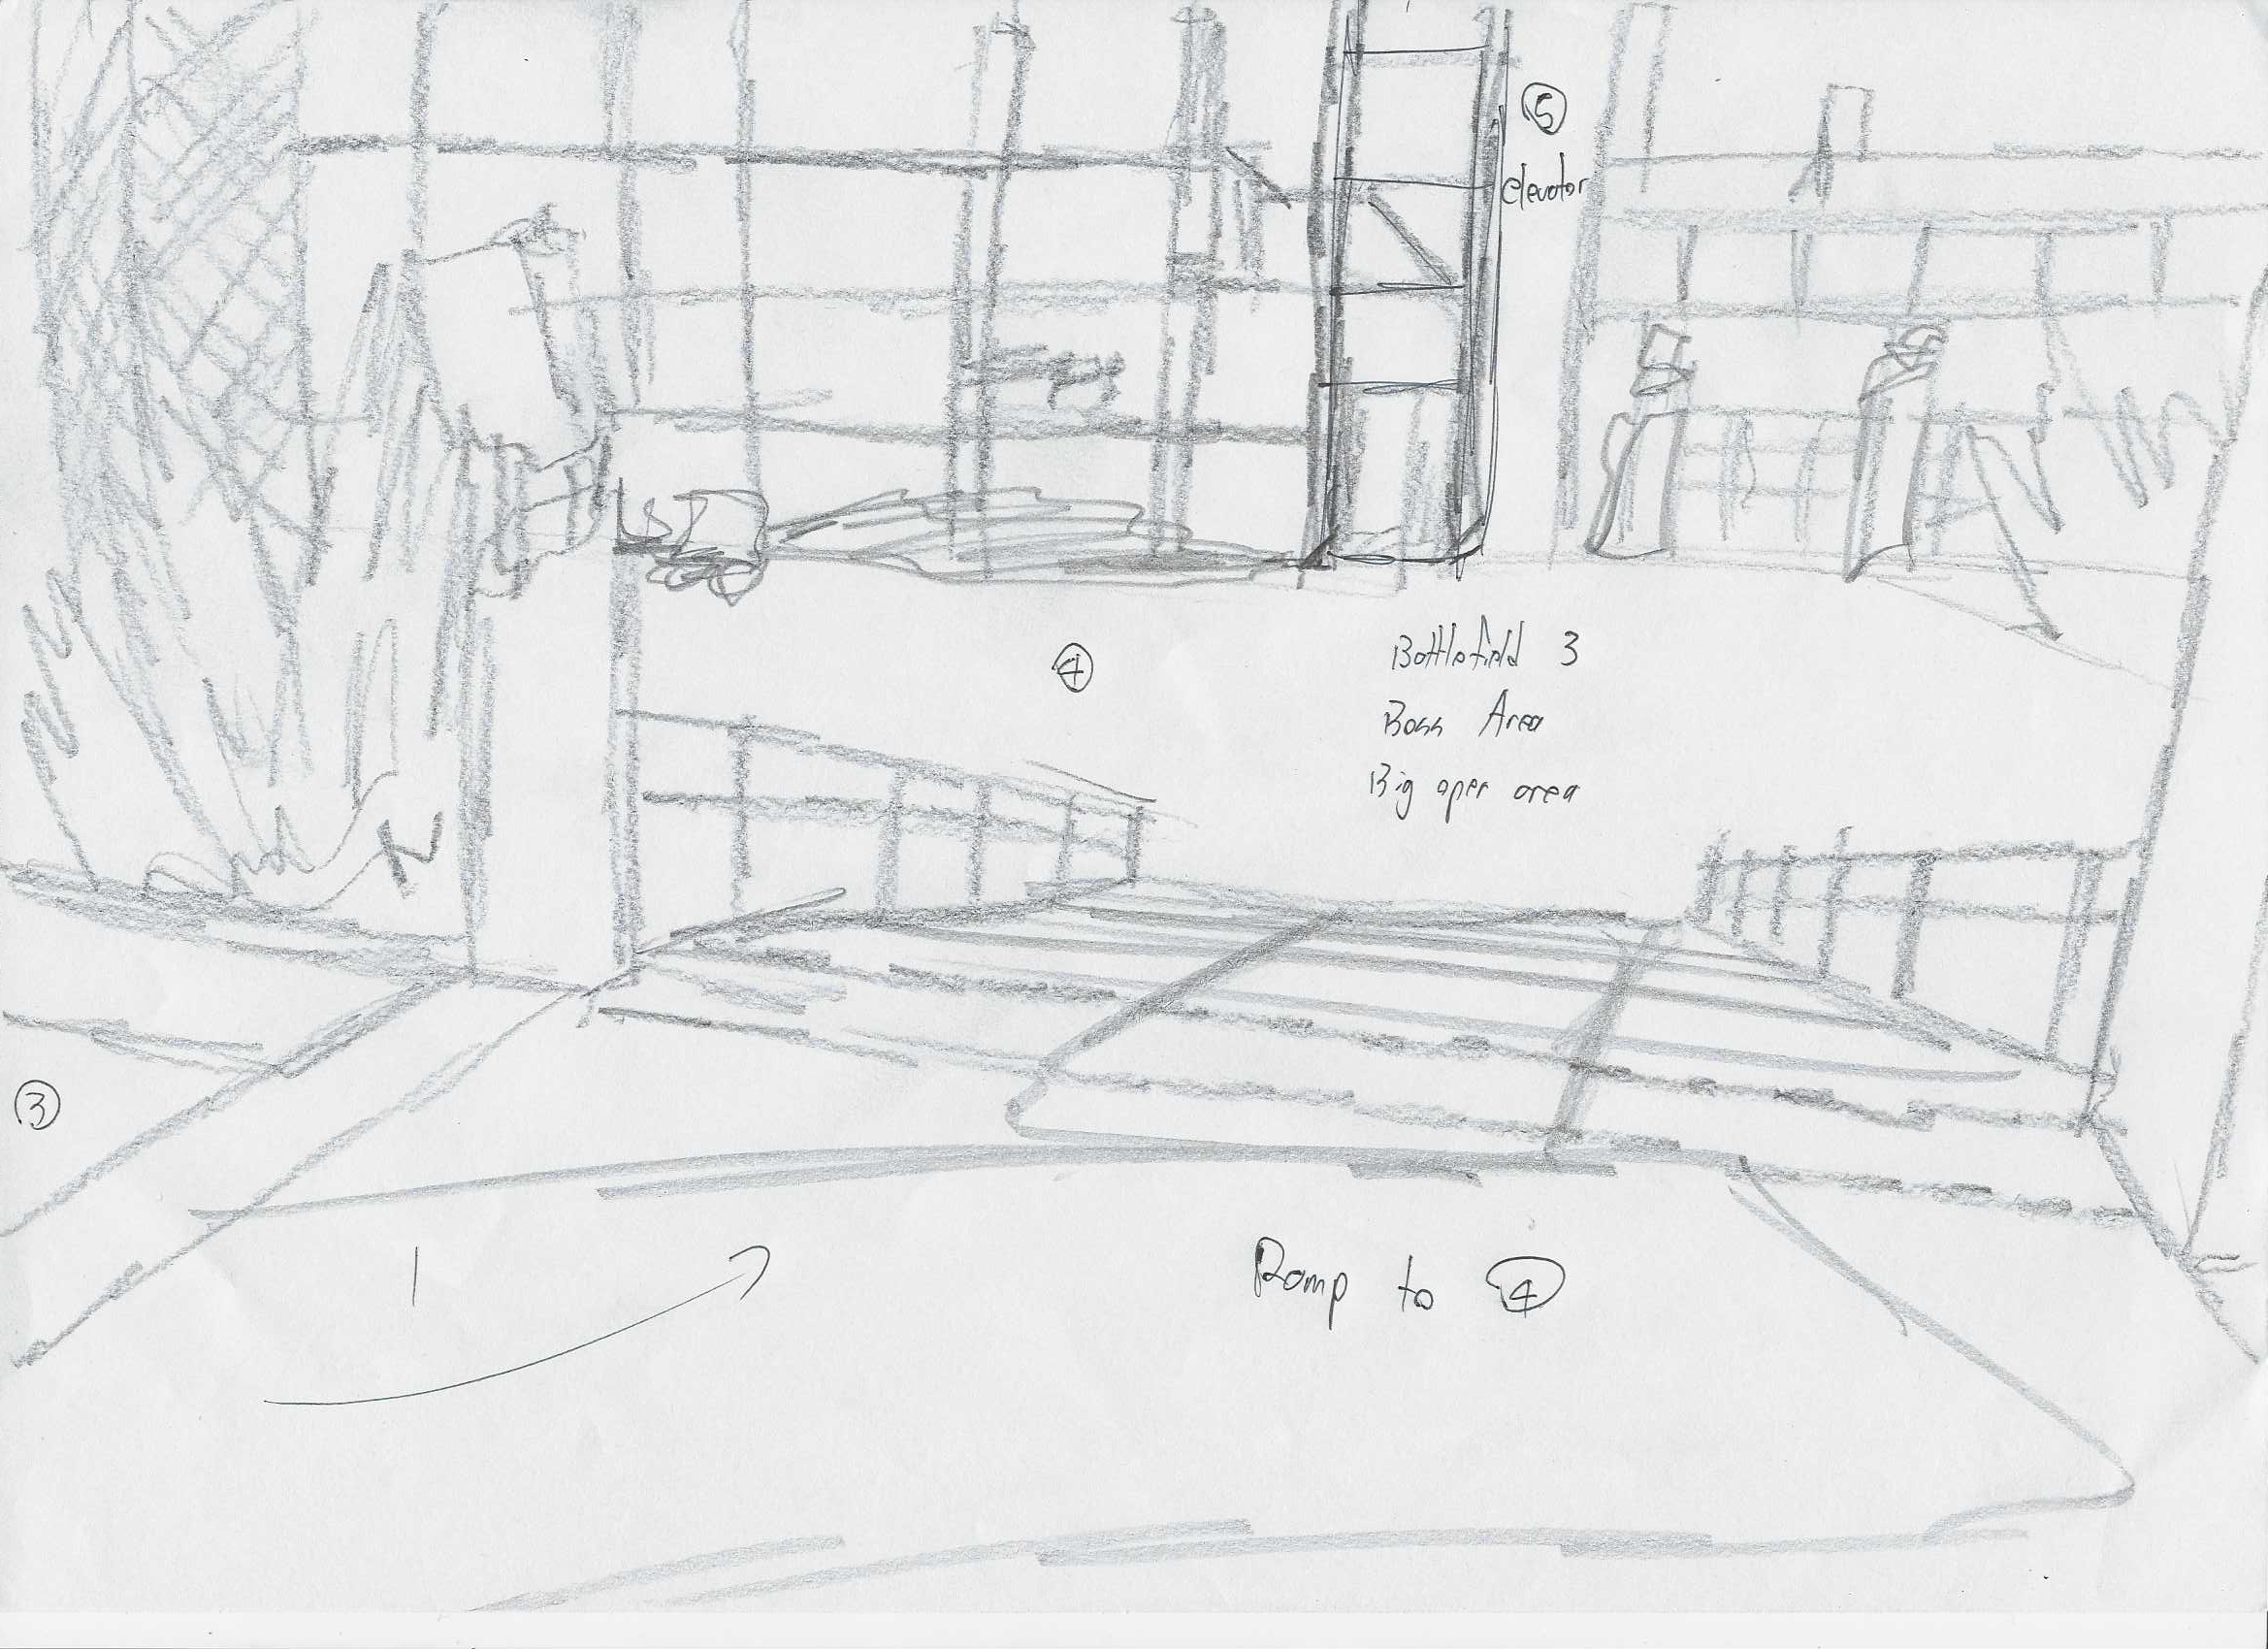 5
elevator
4
Battlefield 3
Boss Area
Big open area
3
Ramp to 4